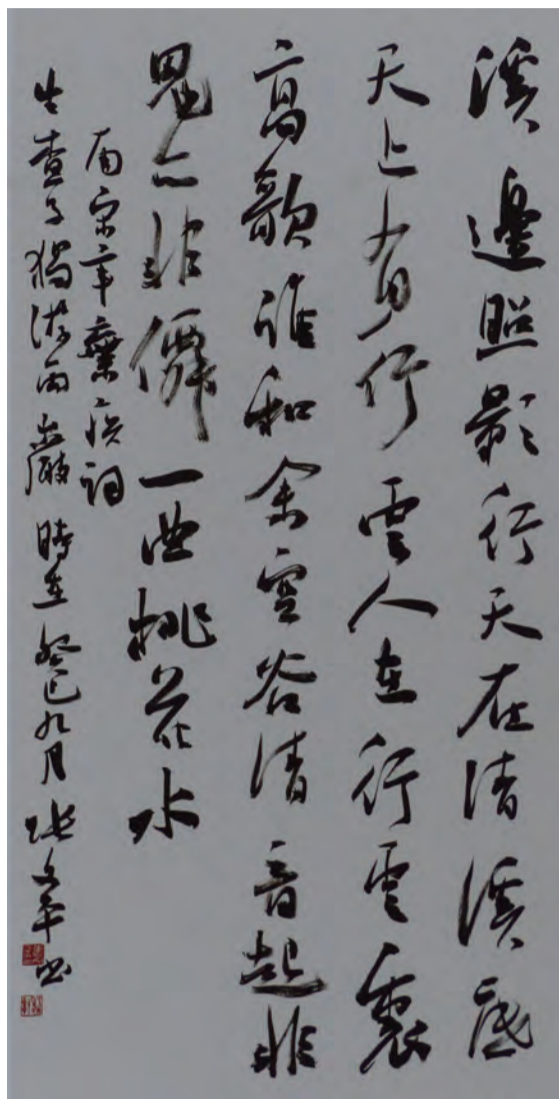 溪邊照影行天在清溪底
天上有行雲人在行雲裏
高歌誰和余空谷清音起非
鬼亦非僊一曲桃花水
南宋辛棄疾詞
生查子獨游雨岩 時在癸巳九月 張文平書